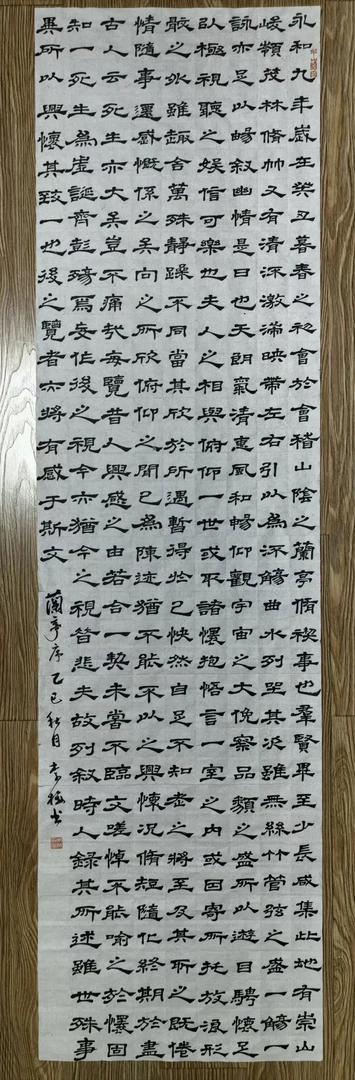 永和九年歲在癸丑暮春之初會於會稽山陰之蘭亭脩禊事也羣賢畢至少長咸集此地有崇山
峻領茂林脩竹又有清流激湍映帶左右引以為流觴曲水列坐其次雖無絲竹管弦之盛一觴一
詠亦足以暢敘幽情是日也天朗氣清惠風和暢仰觀宇宙之大俛察品類之盛所以遊目騁懷足
以極視聽之娛信可樂也夫人之相與俯仰一世或取諸懷抱悟言一室之內或因寄所托放浪形
骸之外雖趣舍萬殊靜躁不同當其欣於所遇暫得於己怏然自足不知老之將至及其所之既倦
情隨事遷感慨係之矣向之所欣俯仰之間已為陳迹猶不能不以之興懷況脩短隨化終期於盡
古人云死生亦大矣豈不痛哉每覽昔人興感之由若合一契未嘗不臨文嗟悼不能喻之於懷固
知一死生為虛誕齊彭殤為妄作後之視今亦猶今之視昔悲夫故列敘時人錄其所述雖世殊事
異所以興懷其致一也後之覽者亦將有感于斯文
蘭亭序乙巳秋月書